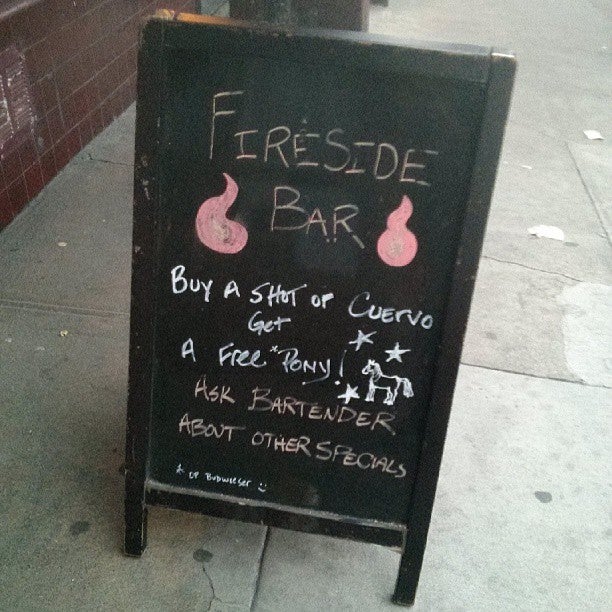 FIRESIDE
BAR
BUY A SHOT OF CUERVO
Get
A FREE *PONY!
ASK BARTENDER
ABOUT OTHER SPECIALS
* OF BUDWEISER :)